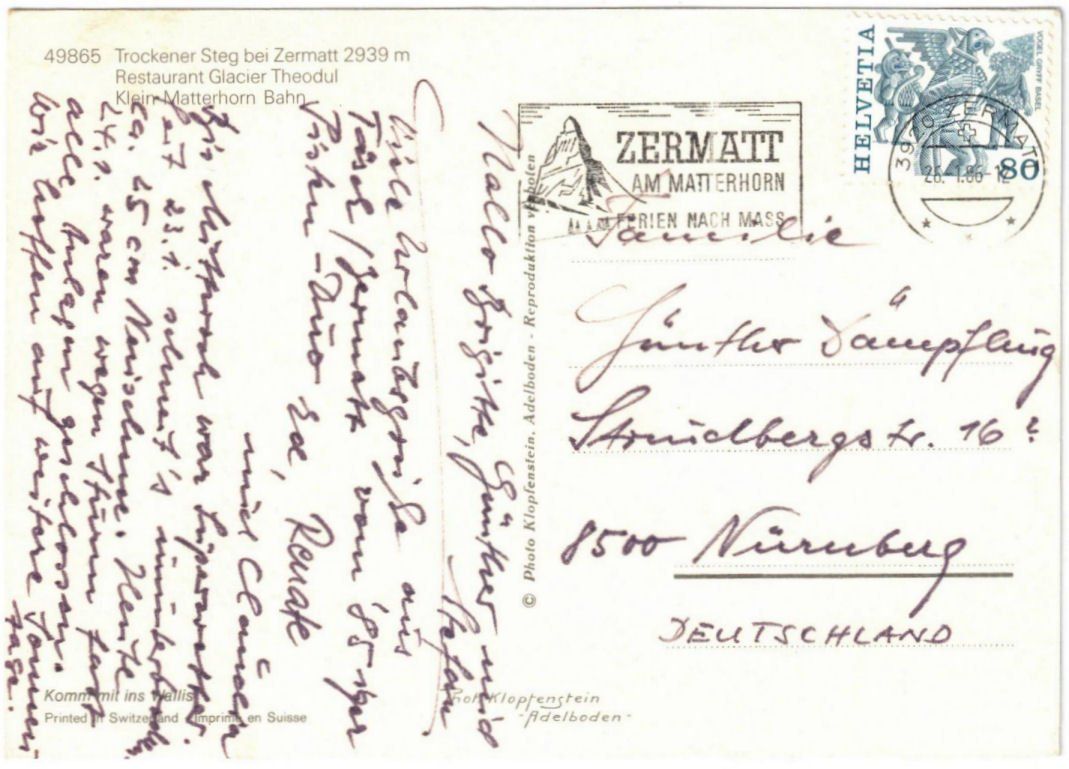 49865 Trockener Steg bei Zermatt 2939 m
Restaurant Glacier Theodul
Klein Matterhorn Bahn
HELVETIA
VOGEL GRYFF BASEL
80
3920 ZERMATT
26.1.86-12
ZERMATT
AM MATTERHORN
FERIEN NACH MASS
Hallo Brigitte, Günther und
Stefan
Viele Urlaubsgrüße aus
Täsch/Zermatt vom 85-iger
Pisten-Duo Ed, Renate
und Claudia
Bis Mittwoch war Superwetter,
seit 23.1. schneit's
ca. 25 cm Neuschnee. Heute
24.1. waren wegen Sturm fast
alle Anlagen geschlossen.
Wir hoffen auf weitere Sonnen
tage.
Familie
Günther Dämpfling
Strindbergstr. 16
8500 Nürnberg
DEUTSCHLAND
© Photo Klopfenstein, Adelboden - Reproduktion verboten
Komm mit ins Wallis
Printed in Switzerland Imprimé en Suisse
Phot. Klopfenstein
-Adelboden-